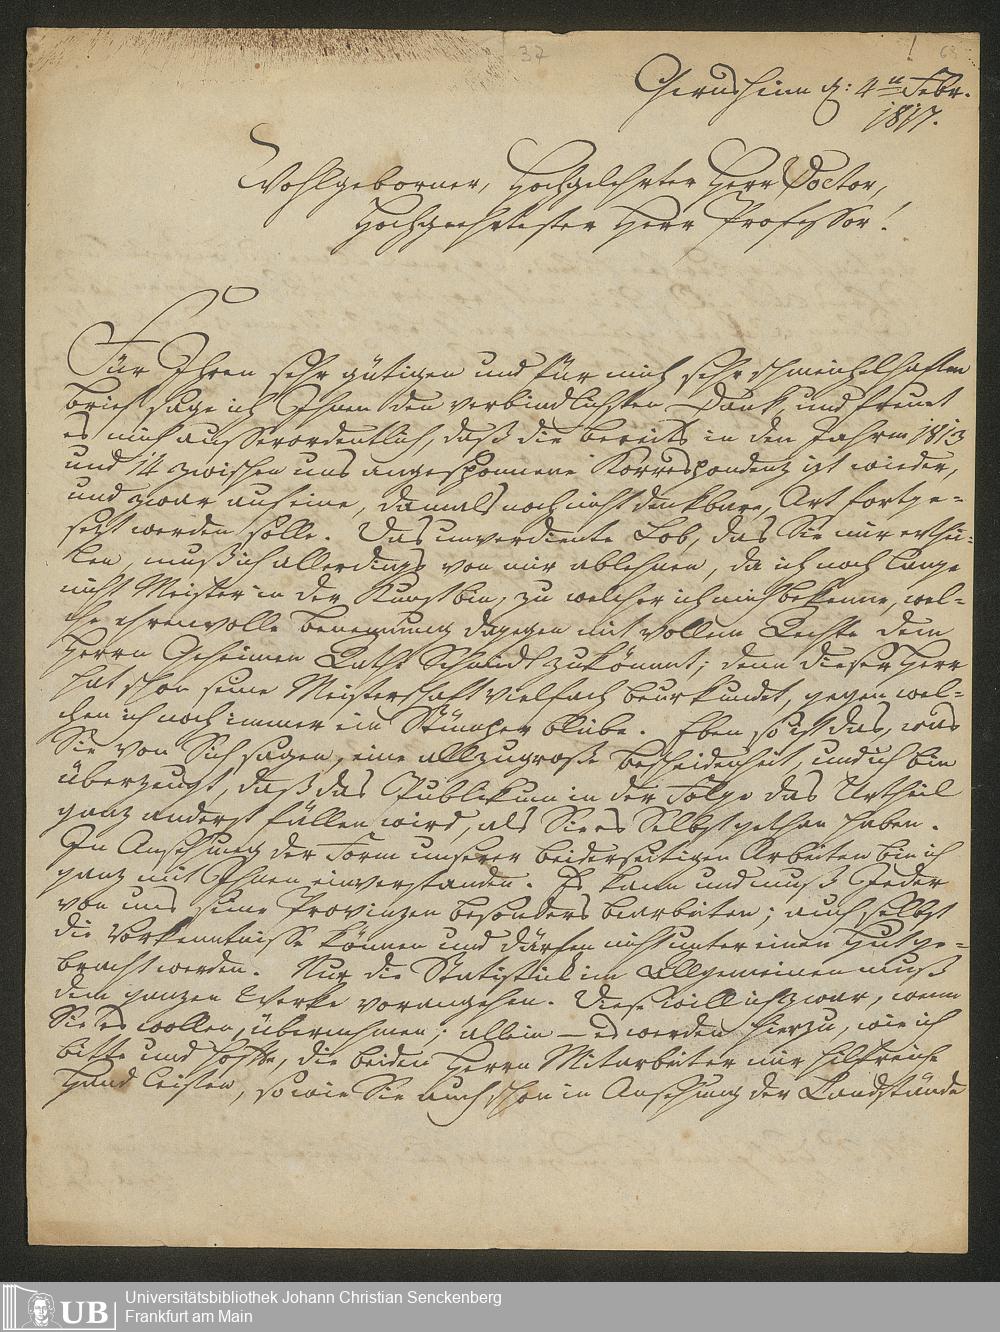 37
63
Gernsheim d: 4n Febr.
1817.
Wohlgeborner, Hochgelehrter Herr Doctor,
Hochgeehrtester Herr Professor!
Für Ihren sehr gütigen und für mich sehr schmeichelhaften
Brief sage ich Ihnen den verbindlichsten Dank, und freuet
es mich ausserordentlich, daß die bereits in den Jahren 1813
und 14 zwischen uns angesponnene Korrespondenz izt wieder,
und zwar auf eine, damals noch nicht denkbare, Art fortge=
setzt werden solle. Das unverdiente Lob, das Sie mir erthei=
len, muß ich allerdings von mir ablehnen, da ich noch lange
nicht Meister in der Kunst bin, zu welcher ich mich bekenne, wel=
che ehrenvolle Benennung dagegen mit vollem Rechte dem
Herrn Geheimen Rath Schmidt zukömmt; denn dieser Herr
hat schon seine Meisterschaft vielfach beurkundet, gegen wel=
chen ich noch immer ein Stümper bleibe. Eben so ist das, was
Sie von Sich sagen, eine allzugroße Bescheidenheit, und ich bin
überzeugt, daß das Publikum in der Folge das Urtheil
ganz anderst fällen wird, als Sie es Selbst gethan haben.
In Ansehung der Form unserer beiderseitigen Arbeiten bin ich
ganz mit Ihnen einverstanden. Es kann und muß Jeder
von uns seine Provinzen besonders bearbeiten; auch selbst
die Vorkenntnisse können und dürfen nicht unter einen Hut ge=
bracht werden. Nur die Statistick im Allgemeinen muß
dem ganzen Werke vorangehen. Diese will ich zwar, wenn
Sie es wollen, übernehmen; allein – es werden hierzu, wie ich
bitte und hoffe, die beiden Herrn Mitarbeiter mir hilfreiche
Hand leisten, so wie Sie auch schon in Ansehung der Landstände
UB
Universitätsbibliothek Johann Christian Senckenberg
Frankfurt am Main